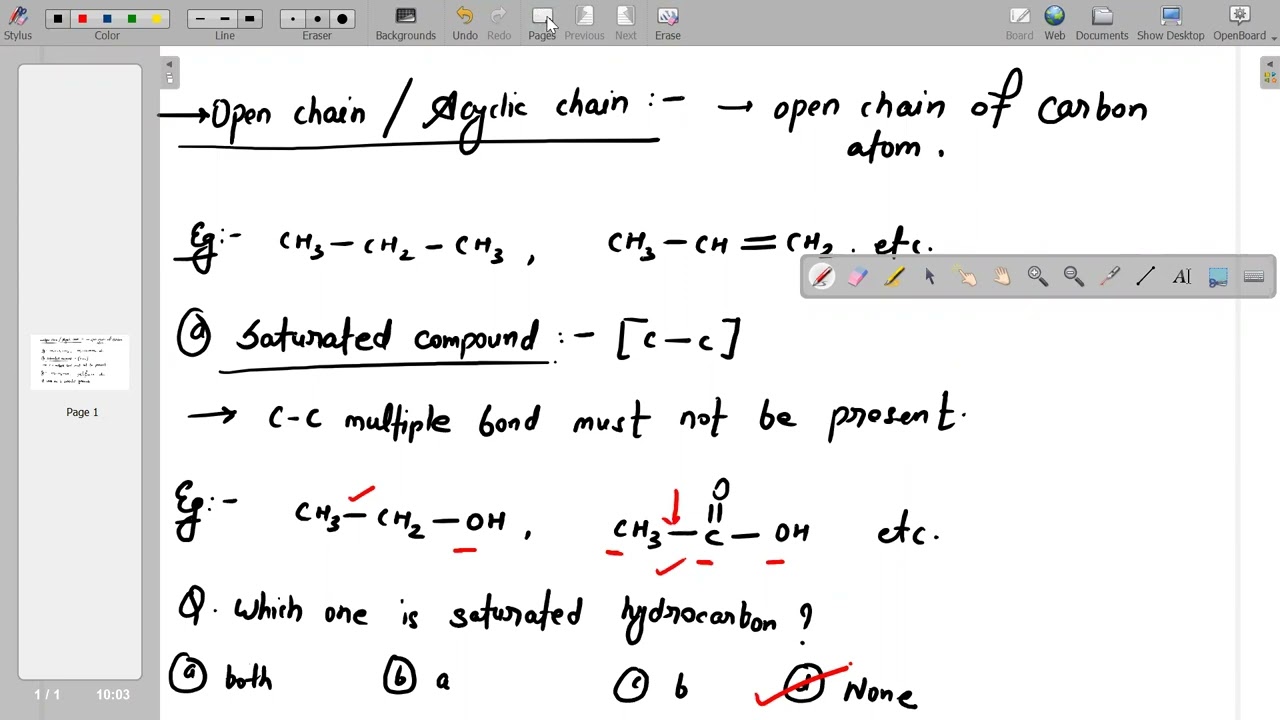 Stylus Color Line Eraser Backgrounds Undo Redo Pages Previous Next Erase Board Web Documents Show Desktop OpenBoard
→ Open chain / Acyclic chain :- → open chain of carbon
atom.
Eg:- CH3 — CH2 — CH3 , CH3 — CH = CH2 . etc.
AI
ⓐ Saturated compound :- [C — C]
→ C-C multiple bond must not be present.
Page 1
O
Eg:- CH3 — CH2 — OH , CH3 — C — OH etc.
Q. Which one is saturated hydrocarbon ?
ⓐ both ⓑ a ⓒ b ⓓ None
1 / 1 10:03